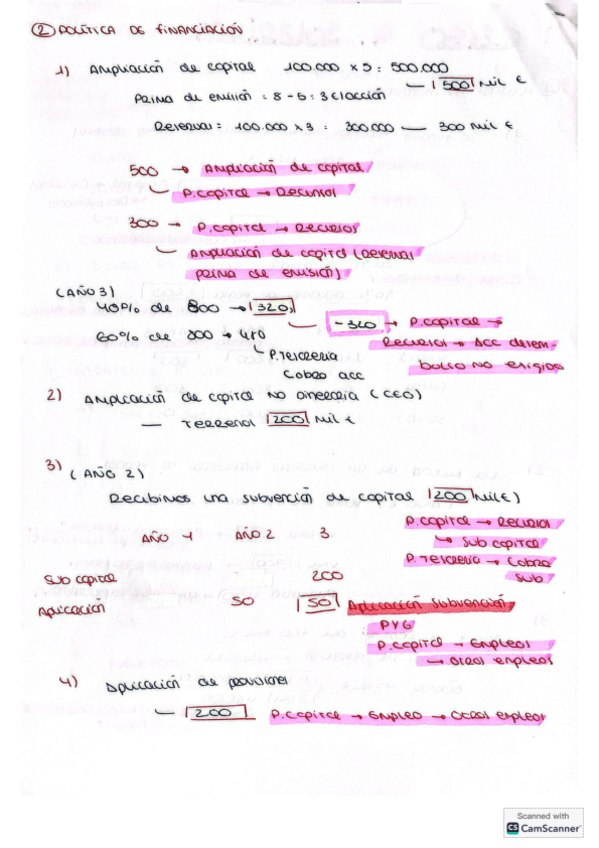 ② POLÍTICA DE FINANCIACIÓN
1) Ampliación de capital 100.000 x 5 = 500.000
— 500 Mil €
Prima de emisión = 8 - 5 = 3€/acción
Reservas = 100.000 x 3 = 300.000 — 300 Mil €
500 → Ampliación de capital
P.capital → Recursos
300 → P.capital → Recursos
Ampliación de capital (Reservas
prima de emisión)
(AÑO 3)
40% de 800 → 320
- 320 → P.capital →
Recursos → Acc desem-
bolso no exigido
60% de 800 →
P.Tesorería
Cobro acc
2) Ampliación de capital no dineraria (CEO)
— Terrenos 1200 Mil €
3) (AÑO 2)
Recibimos una subvención de capital 200 Mil €)
P.capital → Recursos
→ Sub capital
P.Tesorería → Cobro
Sub
AÑO 1 AÑO 2 3
Sub capital 200
Aplicación 50 50 Aplicación subvención
PYG
P.capital → Empleos
→ Otros empleos
4) Aplicación de provisiones
— 200 P.Capital → Empleo → Otros empleos
Scanned with
CS CamScanner